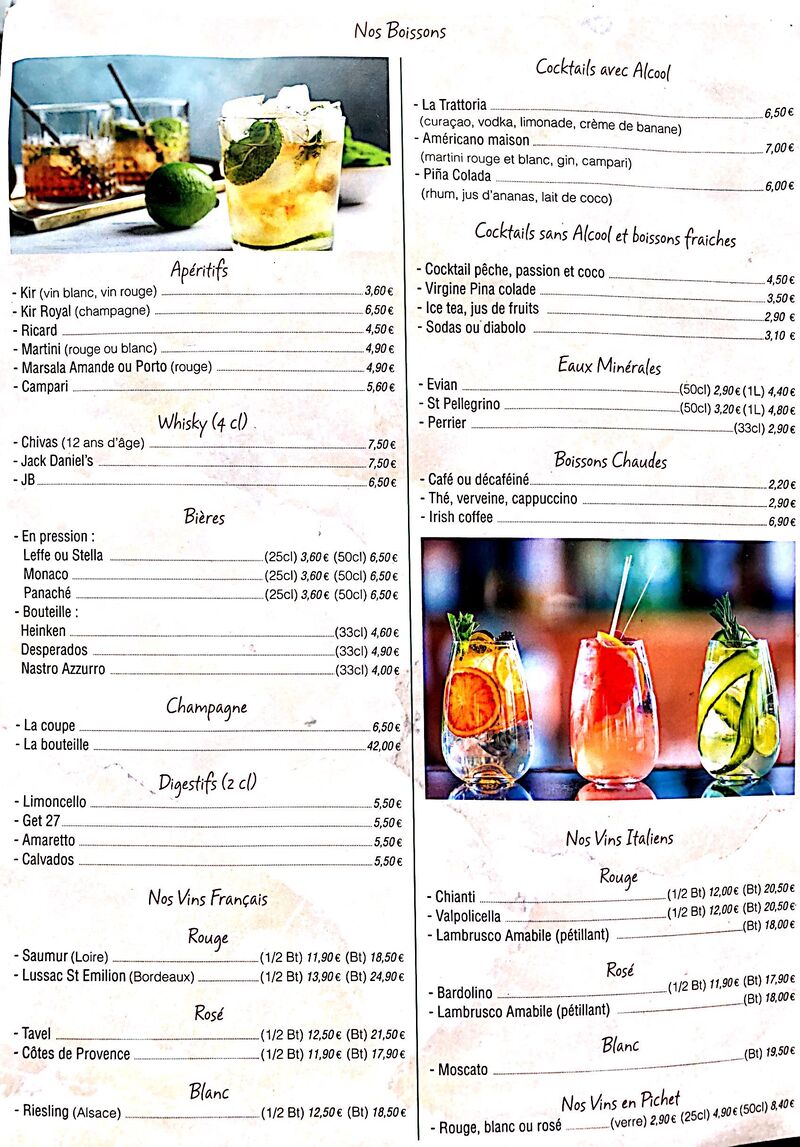 Nos Boissons
Apéritifs
- Kir (vin blanc, vin rouge) 3,60 €
- Kir Royal (champagne) 6,50 €
- Ricard 4,50 €
- Martini (rouge ou blanc) 4,90 €
- Marsala Amande ou Porto (rouge) 4,90 €
- Campari 5,60 €
Whisky (4 cl)
- Chivas (12 ans d'âge) 7,50 €
- Jack Daniel's 7,50 €
- JB 6,50 €
Bières
- En pression :
Leffe ou Stella (25cl) 3,60 € (50cl) 6,50 €
Monaco (25cl) 3,60 € (50cl) 6,50 €
Panaché (25cl) 3,60 € (50cl) 6,50 €
- Bouteille :
Heinken (33cl) 4,60 €
Desperados (33cl) 4,90 €
Nastro Azzurro (33cl) 4,00 €
Champagne
- La coupe 6,50 €
- La bouteille 42,00 €
Digestifs (2 cl)
- Limoncello 5,50 €
- Get 27 5,50 €
- Amaretto 5,50 €
- Calvados 5,50 €
Nos Vins Français
Rouge
- Saumur (Loire) (1/2 Bt) 11,90 € (Bt) 18,50 €
- Lussac St Emilion (Bordeaux) (1/2 Bt) 13,90 € (Bt) 24,90 €
Rosé
- Tavel (1/2 Bt) 12,50 € (Bt) 21,50 €
- Côtes de Provence (1/2 Bt) 11,90 € (Bt) 17,90 €
Blanc
- Riesling (Alsace) (1/2 Bt) 12,50 € (Bt) 18,50 €
Cocktails avec Alcool
- La Trattoria 6,50 €
(curaçao, vodka, limonade, crème de banane)
- Américano maison 7,00 €
(martini rouge et blanc, gin, campari)
- Piña Colada 6,00 €
(rhum, jus d'ananas, lait de coco)
Cocktails sans Alcool et boissons fraiches
- Cocktail pêche, passion et coco 4,50 €
- Virgine Pina colade 3,50 €
- Ice tea, jus de fruits 2,90 €
- Sodas ou diabolo 3,10 €
Eaux Minérales
- Evian (50cl) 2,90 € (1L) 4,40 €
- St Pellegrino (50cl) 3,20 € (1L) 4,80 €
- Perrier (33cl) 2,90 €
Boissons Chaudes
- Café ou décaféiné 2,20 €
- Thé, verveine, cappuccino 2,90 €
- Irish coffee 6,90 €
Nos Vins Italiens
Rouge
- Chianti (1/2 Bt) 12,00 € (Bt) 20,50 €
- Valpolicella (1/2 Bt) 12,00 € (Bt) 20,50 €
- Lambrusco Amabile (pétillant) (Bt) 18,00 €
Rosé
- Bardolino (1/2 Bt) 11,90 € (Bt) 17,90 €
- Lambrusco Amabile (pétillant) (Bt) 18,00 €
Blanc
- Moscato (Bt) 19,50 €
Nos Vins en Pichet
- Rouge, blanc ou rosé (verre) 2,90 € (25cl) 4,90 € (50cl) 8,40 €